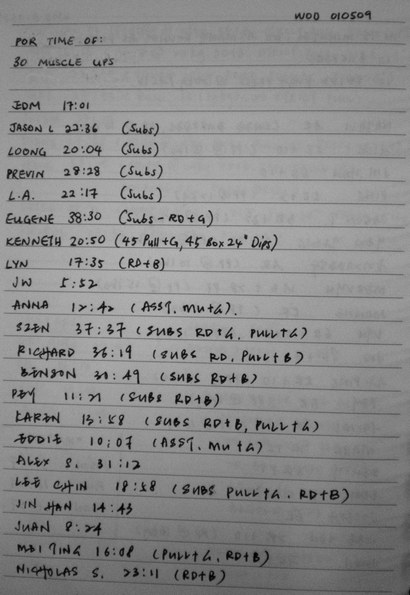 WOD 010509
FOR TIME OF:
30 MUSCLE UPS
EDM 17:01
JASON L 22:36 (Subs)
LOONG 20:04 (Subs)
PREVIN 28:28 (Subs)
L.A. 22:17 (Subs)
EUGENE 38:30 (Subs - RD+G)
KENNETH 20:50 (45 Pull+G, 45 Box 24" Dips)
LYN 17:35 (RD+B)
JW 5:52
ANNA 12:42 (ASST. MU+G).
SZEN 37:37 (SUBS RD+G, PULL+G)
RICHARD 36:19 (SUBS RD, PULL+B)
BENSON 30:49 (SUBS RD+B)
PEY 11:21 (SUBS RD+B)
KAREN 13:58 (SUBS RD+B, PULL+G)
EDDIE 10:07 (ASST. MU+G)
ALEX S. 31:12
LEE CHIN 18:58 (SUBS PULL+G. RD+B)
JIN HAN 14:43
JUAN 8:24
MEI TING 16:08 (PULL+G, RD+B)
NICHOLAS S. 23:11 (RD+B)